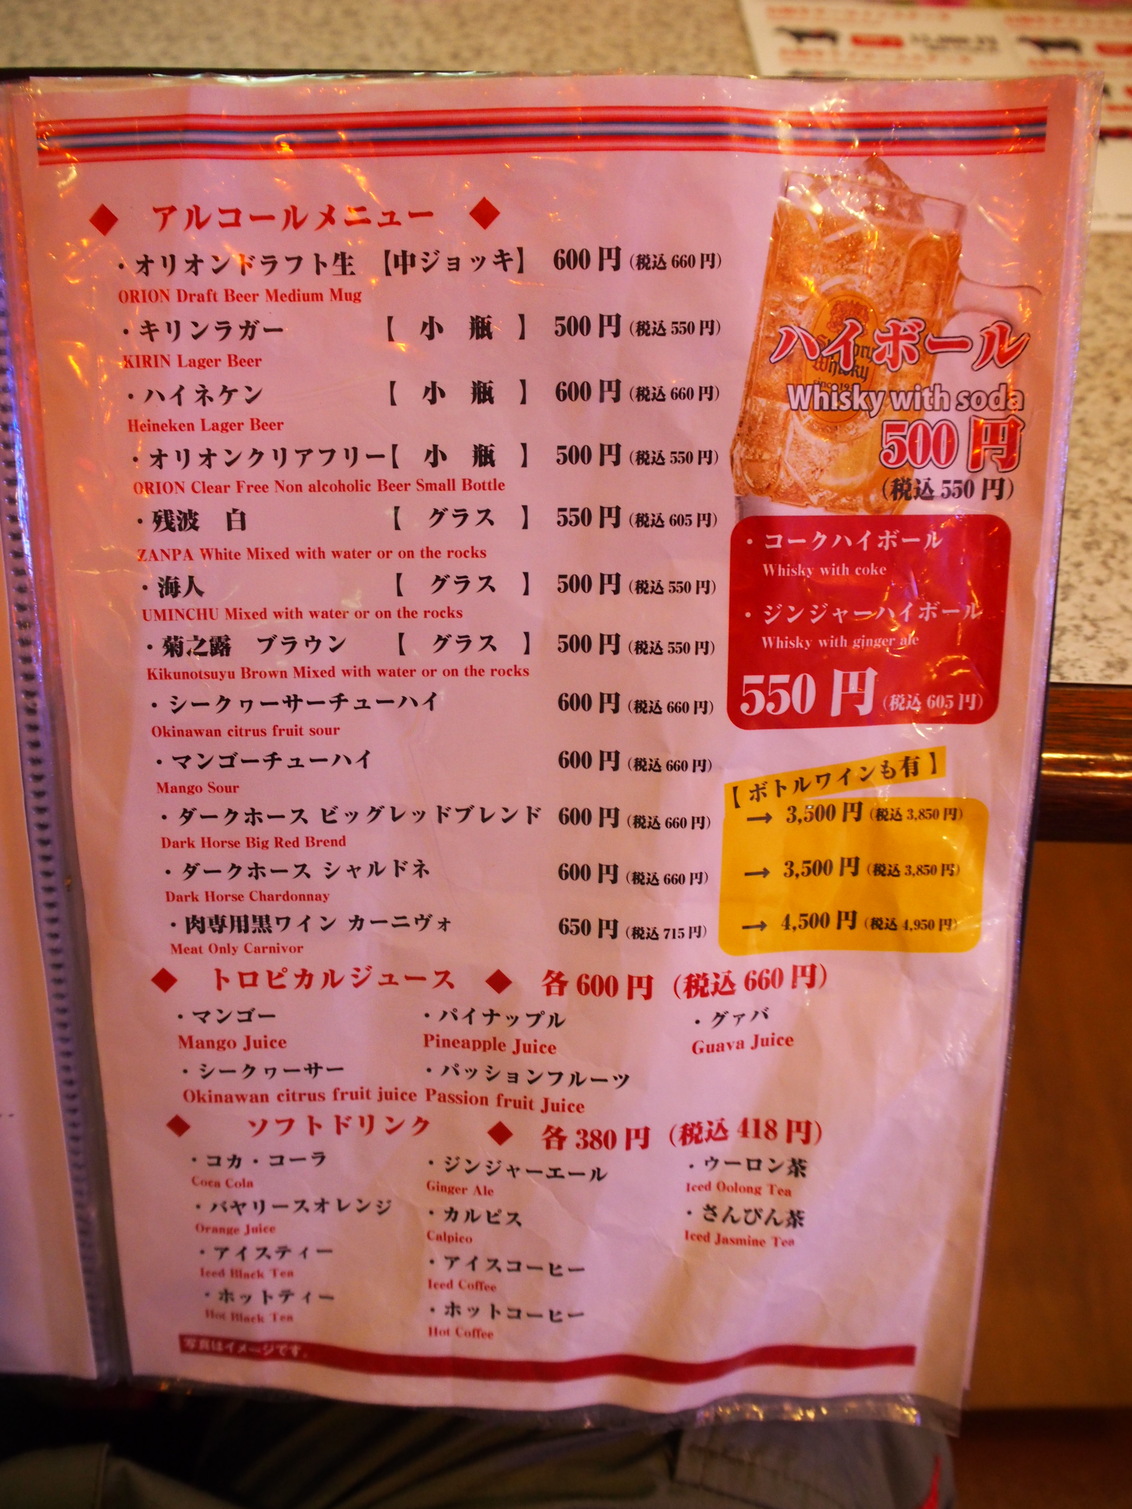 ◆ アルコールメニュー ◆
・オリオンドラフト生 【中ジョッキ】 600円(税込660円)
ORION Draft Beer Medium Mug
・キリンラガー 【 小 瓶 】 500円(税込550円)
KIRIN Lager Beer
・ハイネケン 【 小 瓶 】 600円(税込660円)
Heineken Lager Beer
・オリオンクリアフリー【 小 瓶 】 500円(税込550円)
ORION Clear Free Non alcoholic Beer Small Bottle
・残波 白 【 グラス 】 550円(税込605円)
ZANPA White Mixed with water or on the rocks
・海人 【 グラス 】 500円(税込550円)
UMINCHU Mixed with water or on the rocks
・菊之露 ブラウン 【 グラス 】 500円(税込550円)
Kikunotsuyu Brown Mixed with water or on the rocks
・シークヮーサーチューハイ 600円(税込660円)
Okinawan citrus fruit sour
・マンゴーチューハイ 600円(税込660円)
Mango Sour
・ダークホース ビッグレッドブレンド 600円(税込660円)
Dark Horse Big Red Brend
・ダークホース シャルドネ 600円(税込660円)
Dark Horse Chardonnay
・肉専用黒ワイン カーニヴォ 650円(税込715円)
Meat Only Carnivor
ハイボール
Whisky with soda
500円
(税込550円)
・コークハイボール
Whisky with coke
・ジンジャーハイボール
Whisky with ginger ale
550円(税込605円)
【ボトルワインも有】
→ 3,500円(税込3,850円)
→ 3,500円(税込3,850円)
→ 4,500円(税込4,950円)
◆ トロピカルジュース ◆ 各600円(税込660円)
・マンゴー ・パイナップル ・グァバ
Mango Juice Pineapple Juice Guava Juice
・シークヮーサー ・パッションフルーツ
Okinawan citrus fruit juice Passion fruit Juice
◆ ソフトドリンク ◆ 各380円(税込418円)
・コカ・コーラ ・ジンジャーエール ・ウーロン茶
Coca Cola Ginger Ale Iced Oolong Tea
・バヤリースオレンジ ・カルピス ・さんぴん茶
Orange Juice Calpico Iced Jasmine Tea
・アイスティー ・アイスコーヒー
Iced Black Tea Iced Coffee
・ホットティー ・ホットコーヒー
Hot Black Tea Hot Coffee
写真はイメージです。